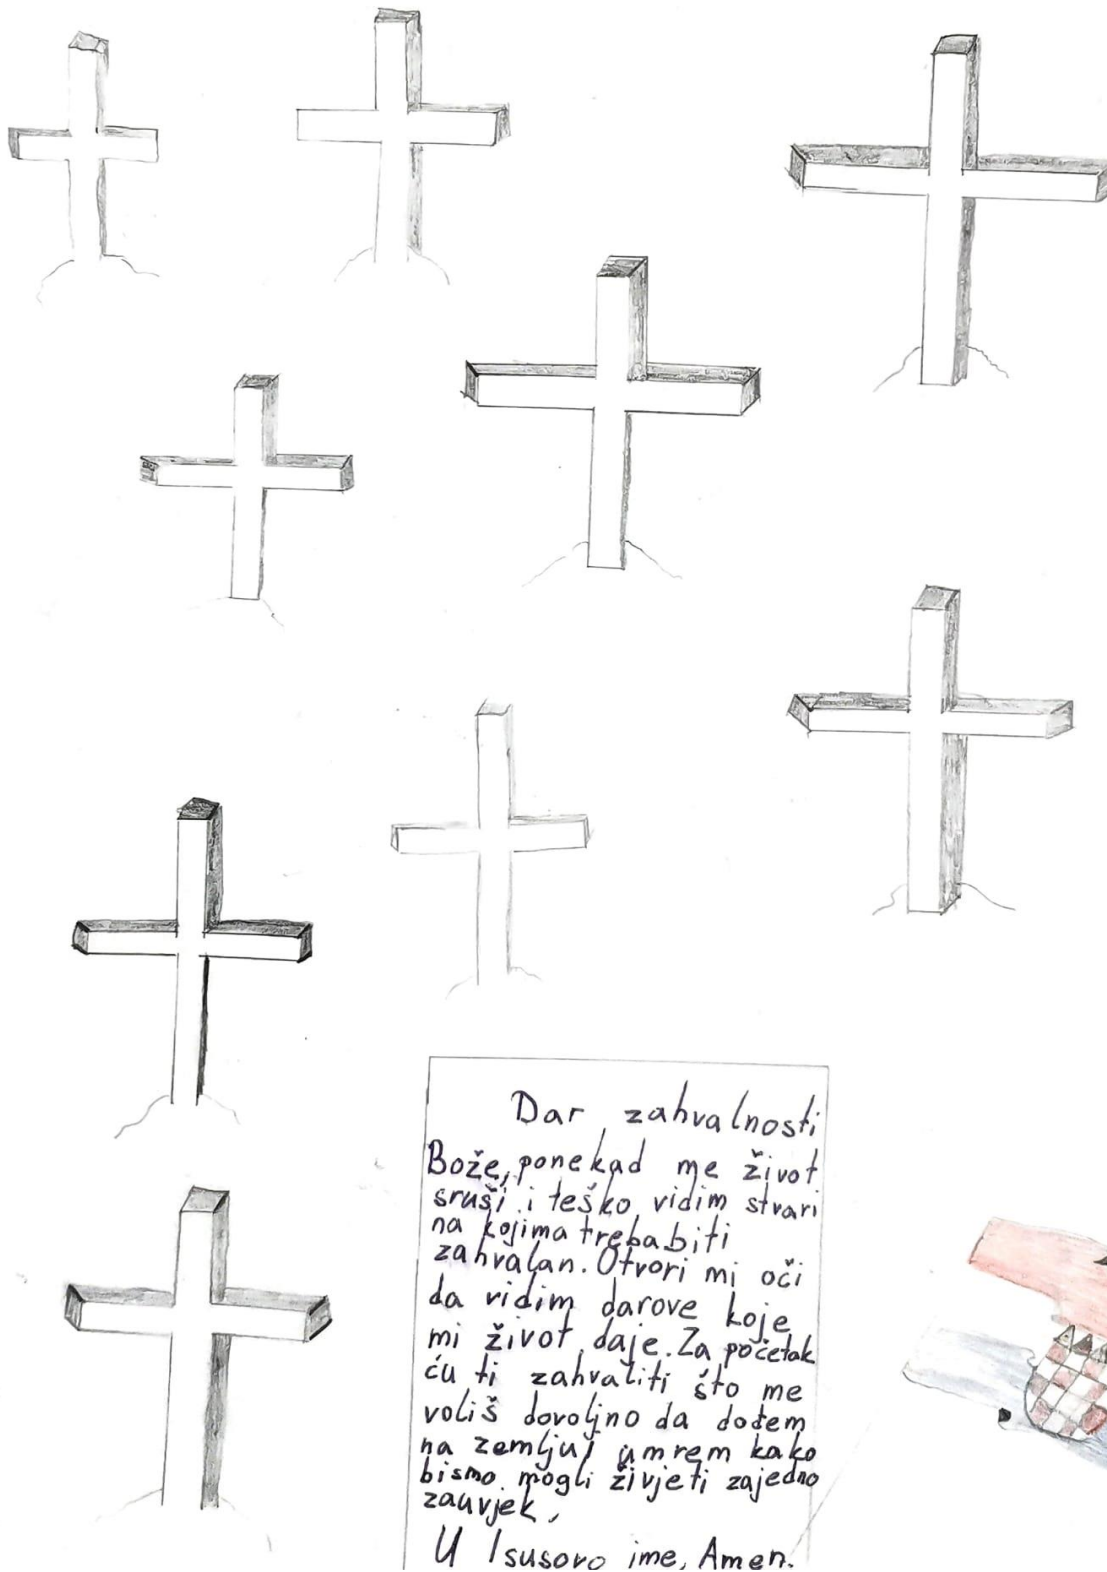 Dar zahvalnosti
Bože, ponekad me život
sruši i teško vidim stvari
na kojima treba biti
zahvalan. Otvori mi oči
da vidim darove koje
mi život daje. Za početak
ću ti zahvaliti što me
voliš dovoljno da dođem
na zemlju i umrem kako
bismo mogli živjeti zajedno
zauvjek,
U Isusovo ime, Amen.